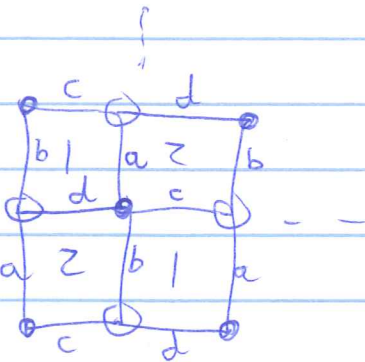 c d
b 1 a 2 b
d c
a 2 b 1 a
c d